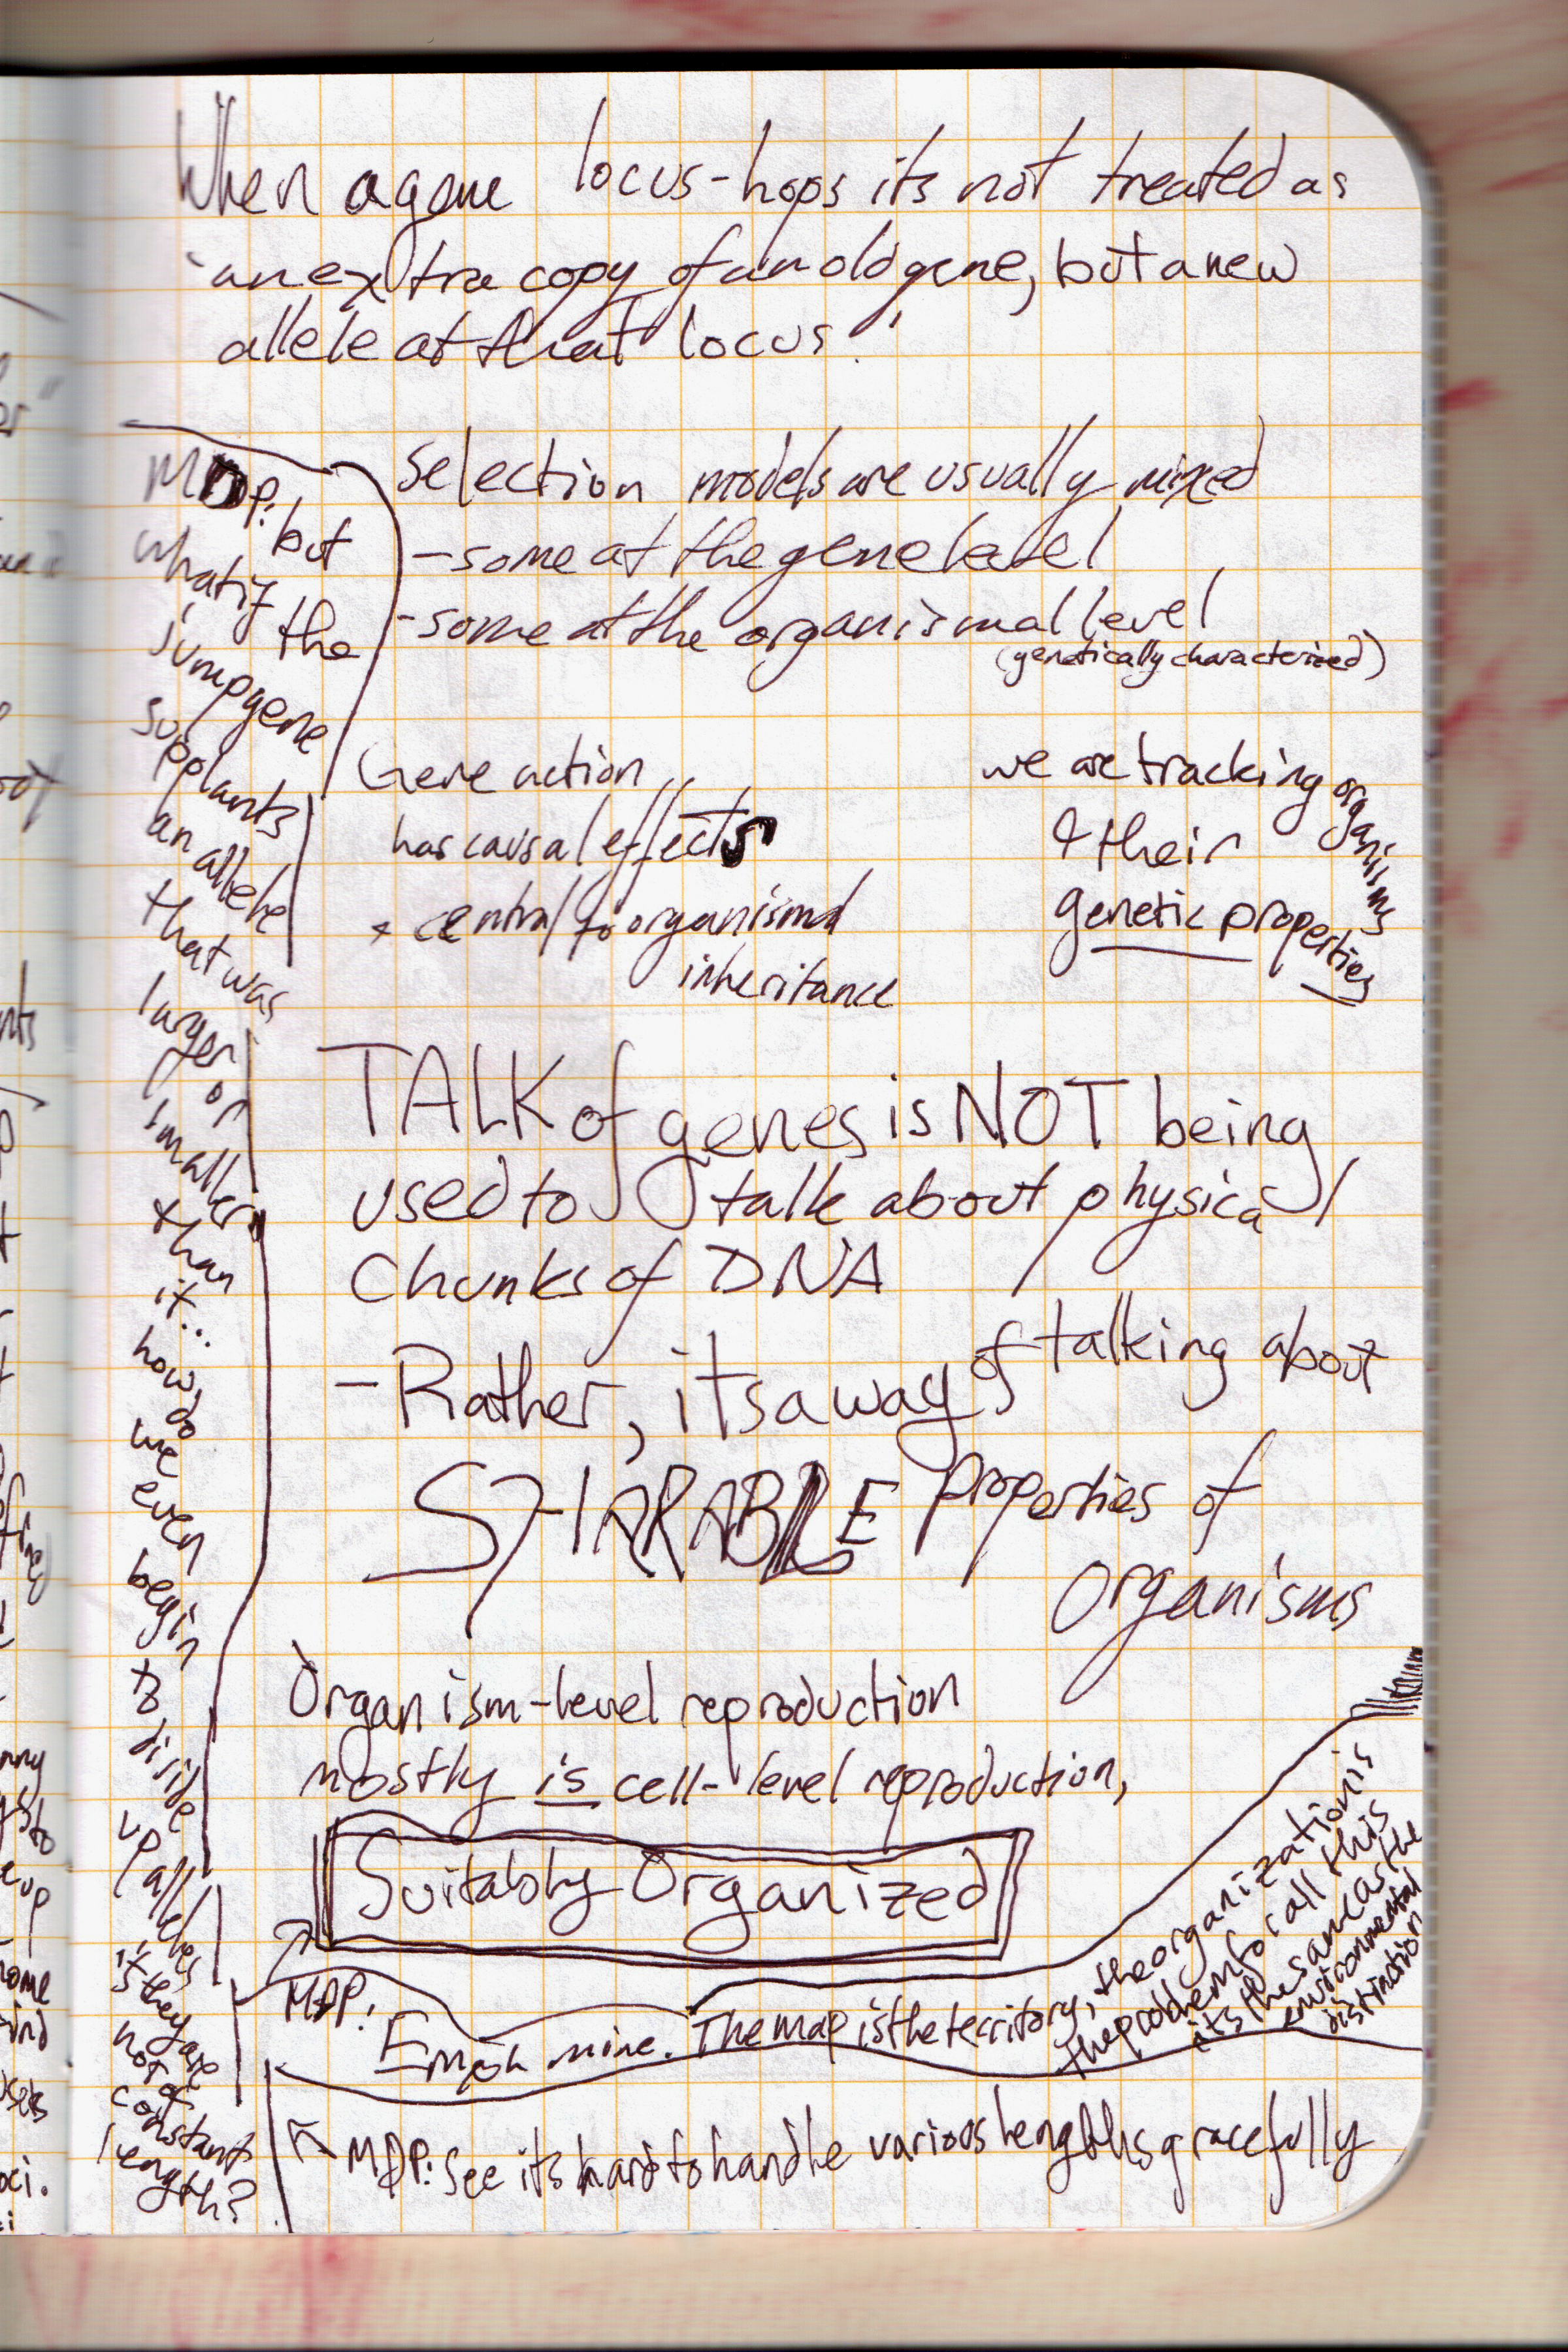 When a gene locus-hops its not treated as
an extra copy of an old gene, but a new
allele at that locus!
Selection models are usually mixed
- some at the gene level
- some at the organismal level
(genetically characterized)
Gene action
has causal effects
+ central to organismal
inheritance
we are tracking organisms
& their
genetic properties
TALK of genes is NOT being
used to talk about physical
chunks of DNA
- Rather, its a way of talking about
SHARABLE properties of
organisms
Organism-level reproduction
mostly is cell-level reproduction,
Suitably Organized
MDP:
mine. The map is the territory, the organization is
the problem for call this
its the same as the
environmental
distinction
MDP: see its hard to handle various lengths gracefully
MDP: but
what if
the
jumpgene
supplants
an allele
that was
larger
or
smaller
than
it...
how
do
we
even
begin
to
diside
up alleles
if they are
not of
constant
length?